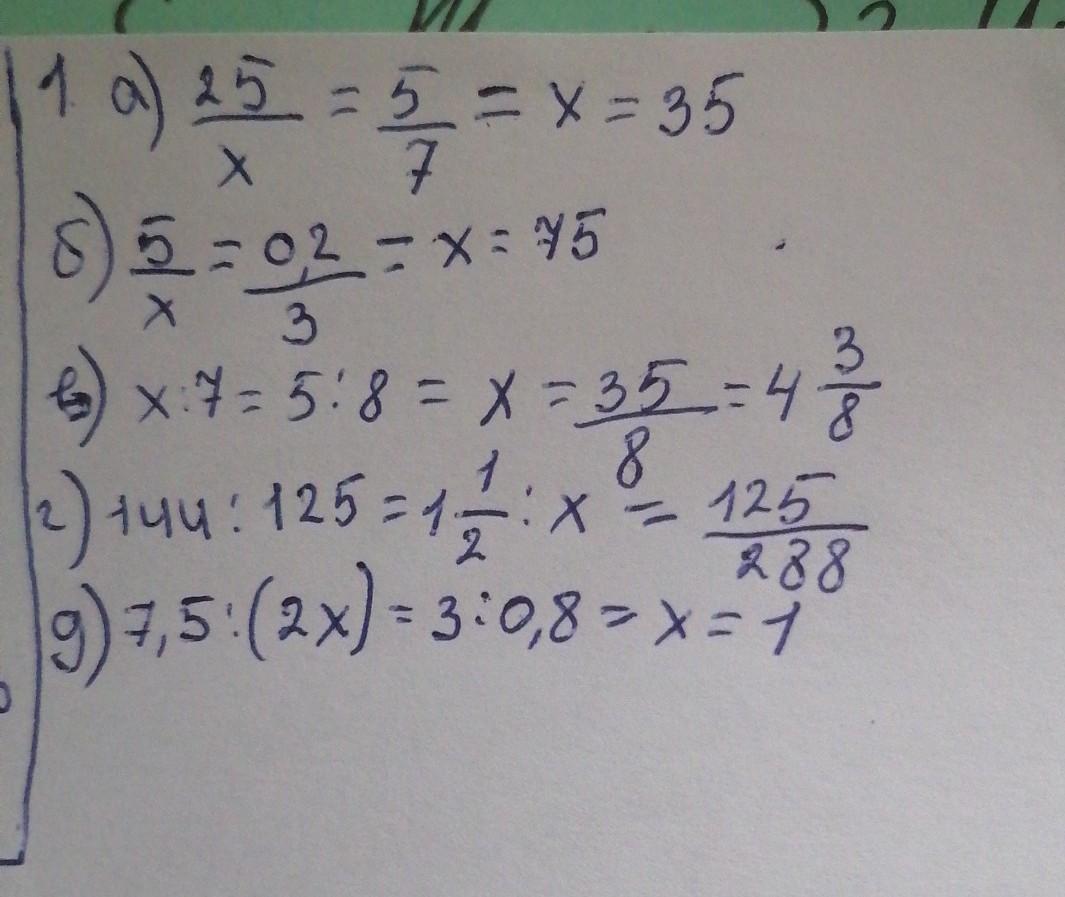 1. а) 25/x = 5/7 = x = 35
б) 5/x = 0,2/3 = x = 75
в) x:7 = 5:8 = x = 35/8 = 4 3/8
г) 144 : 125 = 1 1/2 : x = 125/288
д) 7,5:(2x) = 3:0,8 = x = 1